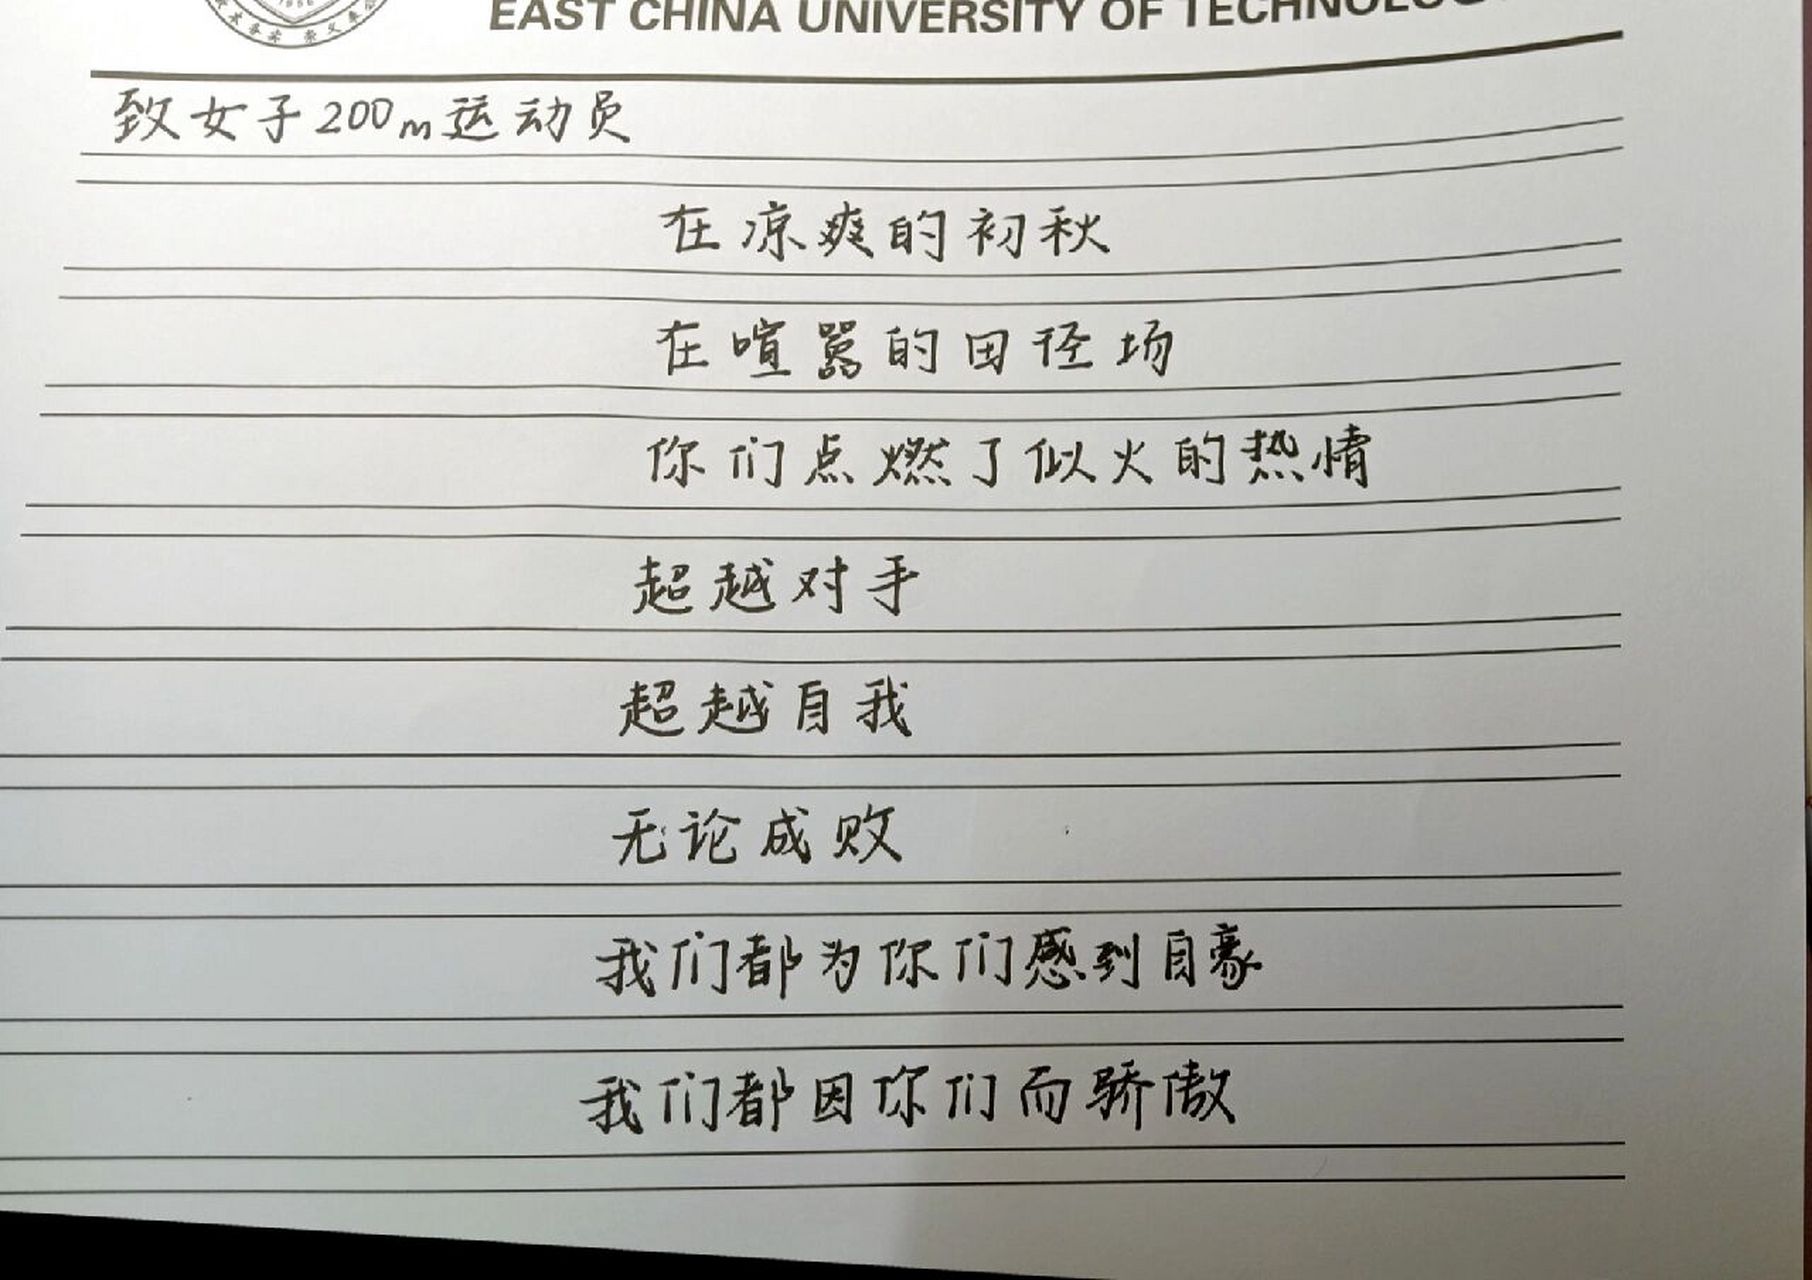 EAST CHINA UNIVERSITY OF TECHNOLOGY
致女子200m运动员
在凉爽的初秋
在喧嚣的田径场
你们点燃了似火的热情
超越对手
超越自我
无论成败
我们都为你们感到自豪
我们都因你们而骄傲